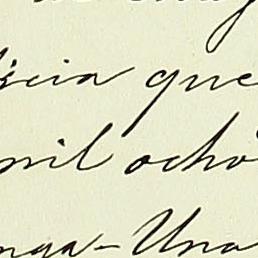 scia que
mil ocho
nga- Una